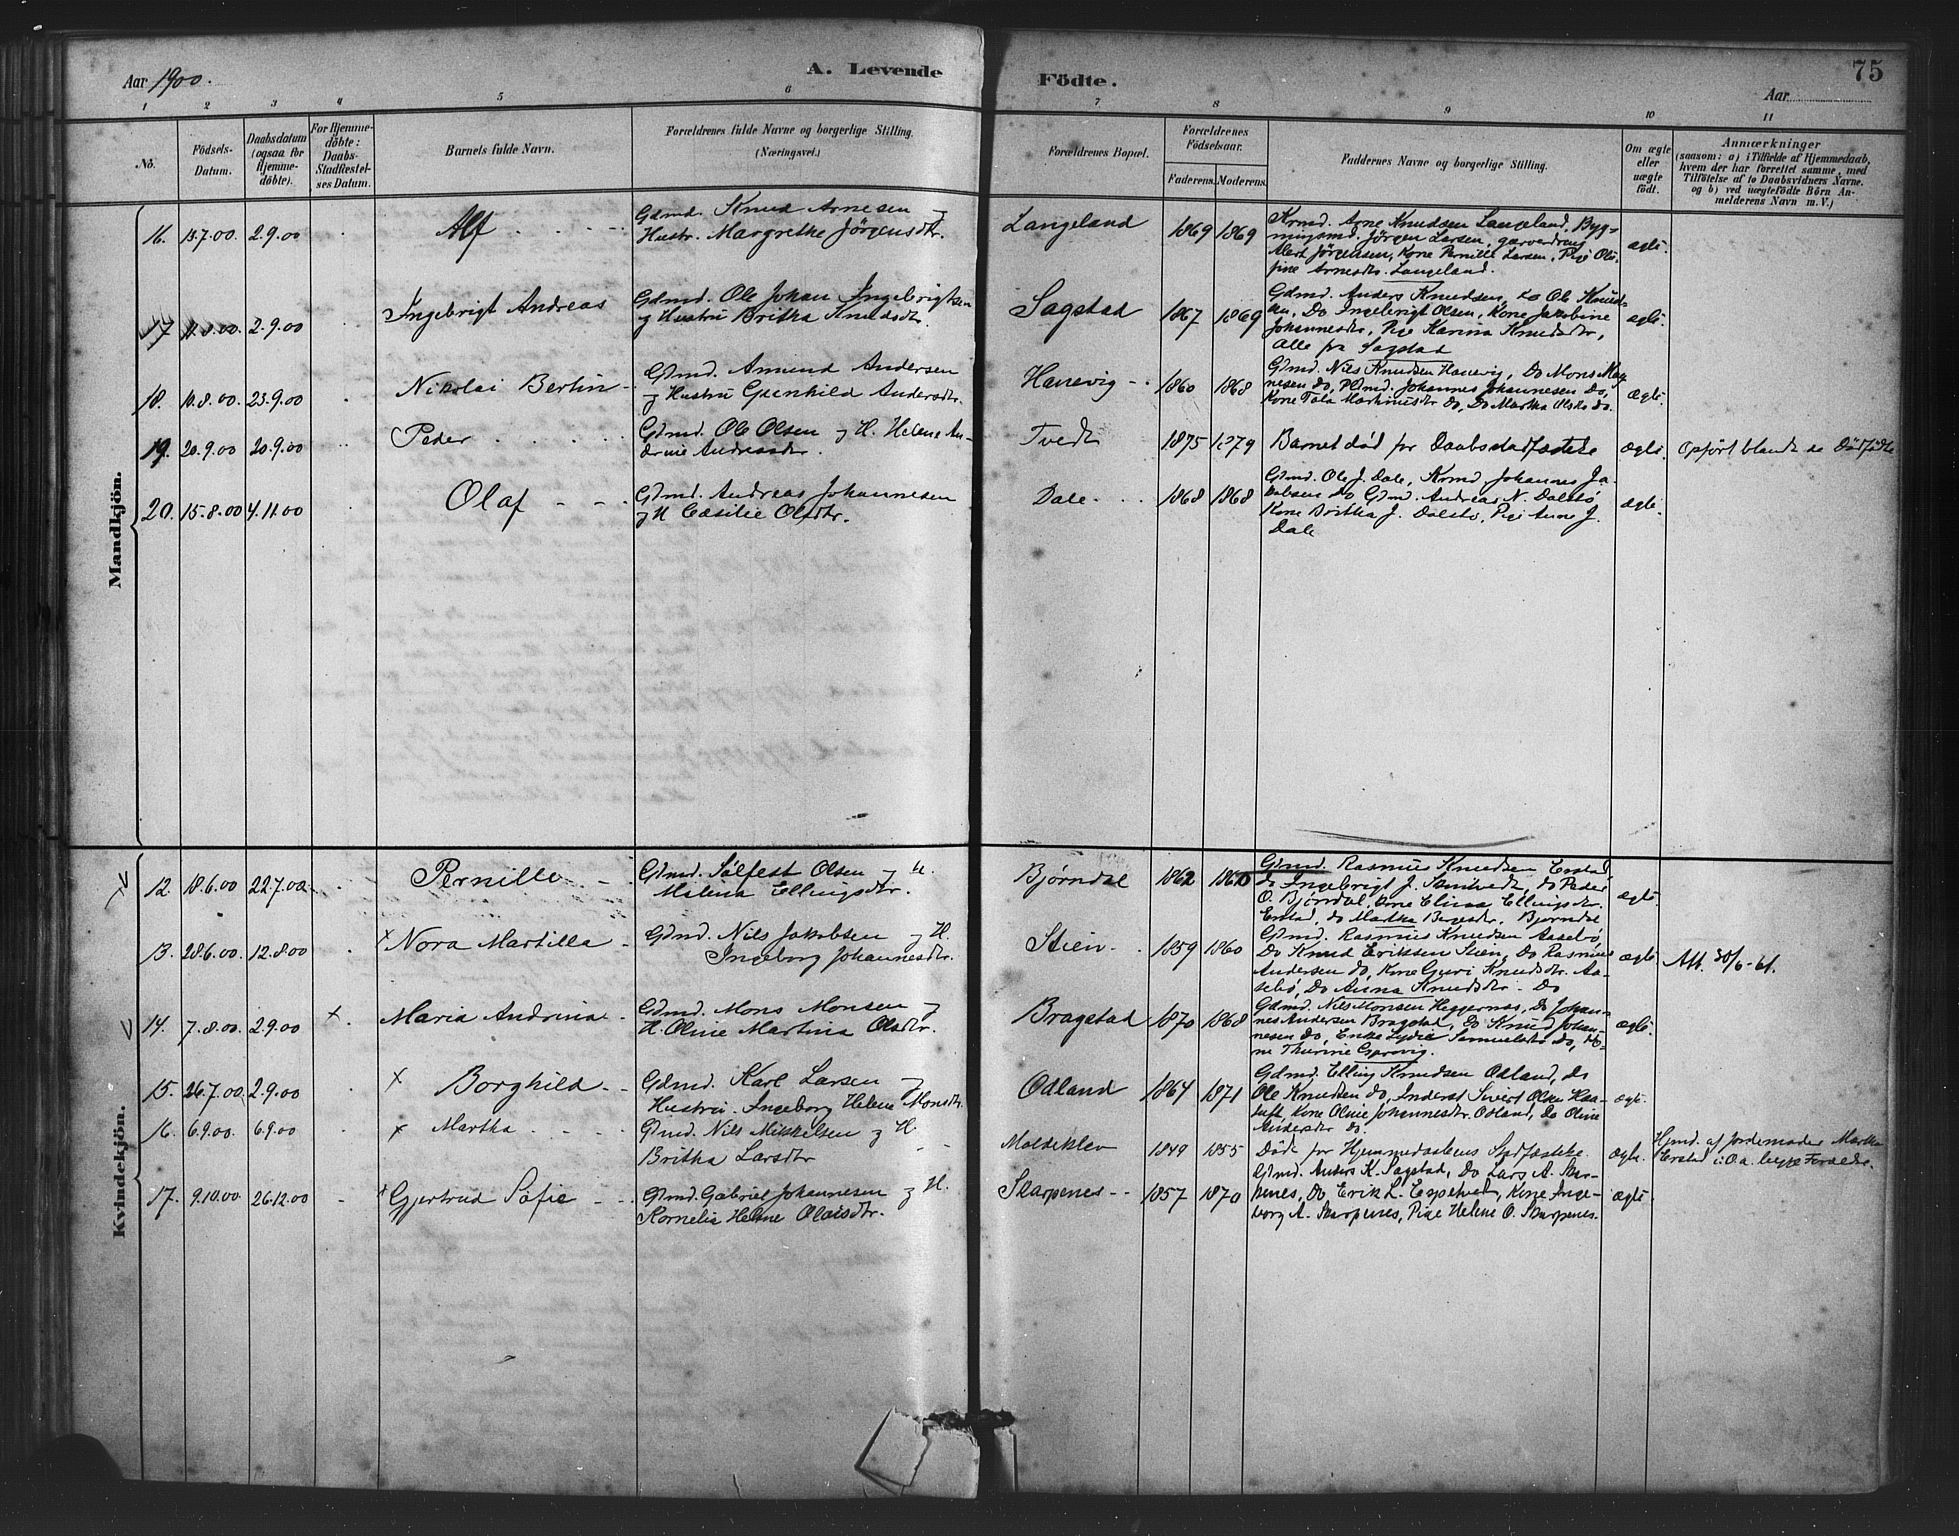 Aar 1900.
A. Levende
Födte.
75
Aar
1 2 3 4 5 6 7 8 9 10 11
No.
Födsels-
Datum.
Daabsdatum
(ogsaa for
Hjemme-
döbte).
For Hjemme-
döbte:
Daabs-
Stadfæstel-
ses Datum.
Barnets fulde Navn.
Forældrenes fulde Navne og borgerlige Stilling.
(Næringsvei.)
Forældrenes Bopæl.
Forældrenes
Födselsaar.
Faderens. Moderens.
Faddernes Navne og borgerlige Stilling.
Om ægte
eller
uægte
födt.
Anmærkninger
(saasom: a) i Tilfælde af Hjemmedaab,
hvem der har forrettet samme, med
Tilföielse af to Daabsvidners Navne.
og b) ved uægtefödte Börn An-
melderens Navn m. V.)
Mandkjön.
16. 15.7.00. 2.9.00 Alf
Gdmd. Knud Arnesen og
Hustr. Margrethe Jørgensdtr.
Langeland 1869 1869
Krmd. Arne Knudsen Langeland, Byg-
ningsmd. Jörgen Larsen, garverdreng
Jörgensen, Kone Pernille Larsen, Pige Ole-
fine Arnesdtr. Langeland.
ægte.
17 2.9.00 Ingebrigt Andreas
Gdmd. Ole Johan Ingebrigtsen
og Hustru Britha Knudsdtr.
Sagstad 1867 1869
Gdmd. Anders Knudsen, do Ole Knud-
sen, Do Ingebrigt Olsen, Kone Jakobine
Johannesdtr, Pige Karina Knudsdtr,
Alle fra Sagstad
ægte.
18. 10.8.00. 23.9.00 Nikolai Bertin
Gdmd. Amund Andersen
og Hustru Gunhild Andersdtr.
Hanevig 1860 1868
Gdmd. Nils Knudsen Hanevig, Do Mons Mag-
nesen do, Pdmd. Johannes Johannesen Do,
Kone Tala Markinusdtr do, Do Martha Olsdtr do.
ægte.
19. 20.9.00 20.9.00 Peder
Gdmd. Ole Olsen og H. Helene An-
drine Andreasdtr.
Tvedt 1875 1879
Barnet död för Daabsstadfæstelse
ægte. Opfört blandt de Dödfödte
20. 15.8.00 4.11.00 Olaf
Gdmd. Andreas Johannesen
og H Cæsilie Olsdtr.
Dale. 1868 1868
Gdmd. Ole J. Dale, Krmd Johannes Ja-
kobsen do Gdmd. Andreas N. Dalsbö
Kone Britha J. Dalsbö, Pige Anne J.
Dale
ægte.
Kvindekjön.
12. 18.6.00 22.7.00 Pernille
Gdmd. Sölfest Olsen og H.
Malena Ellingsdtr.
Bjørndal 1862 1860
Gdmd. Rasmus Knudsen Erstad
do Ingebrigt J. Samtvedt, do Peder
O. Bjørndal, Kone Elina Ellingsdtr.
Erstad, do Martha Børgesdtr. Bjørndal
ægte.
13. 28.6.00. 12.8.00 × Nora Martilla
Gdmd. Nils Jakobsen og H.
Ingeborg Johannesdtr.
Stien 1859 1860
Gdmd. Rasmus Knudsen Aasebö
Do Knud Eriksen Stien, Do Rasmus
Andersen do, Kone Guri Knudsdtr. Aa-
sebö, Do Anna Knudsdtr. Do
ægte. Att. 30/6-61.
14. 7.8.00. 2.9.00 × Maria Andrina
Gdmd. Mons Monsen og
H. Oline Martina Olsdtr.
Bragstad 1870 1868
Gdmd. Nils Monsen Heggernæs, Do Johan-
nes Andersen Bragstad, Do Knud Johan-
nesen do, Enke Lydie Samuelsdtr do, Ko-
ne Thurine Gjervig.
ægte.
15. 26.7.00. 2.9.00 × Borghild
Gdmd. Karl Larsen og
Hustru. Ingeborg Helene Monsdtr.
Odland 1864 1871
Gdmd. Elling Knudsen Odland, do
Ole Knudsen do, Inderst Sivert Olsen Haa-
tuft, Kone Oline Johannesdtr. Odland, Do Oline
Andersdtr do.
ægte.
16. 6.9.00. 6.9.00 × Martha
Gdmd. Nils Mikkelsen og H
Britha Larsdtr
Moldeklev 1849 1855
Död för Hjemmedaabens Stadfæstelse.
ægte. Hjmd. af Jordemoder Martha
Erstad i O.a. begge Forældre.
17. 9.10.00 26.12.00 × Gjertrud Sofie
Gdmd. Gabriel Johannesen og H.
Kornelia Helene Olaisdtr.
Skarpenes 1857 1870
Gdmd. Anders K. Sagstad, Do Lars A. Skar-
penes, do Erik L. Espetvedt, Kone Inge-
borg A. Skarpenes, Pige Helene O. Skarpenes.
ægte